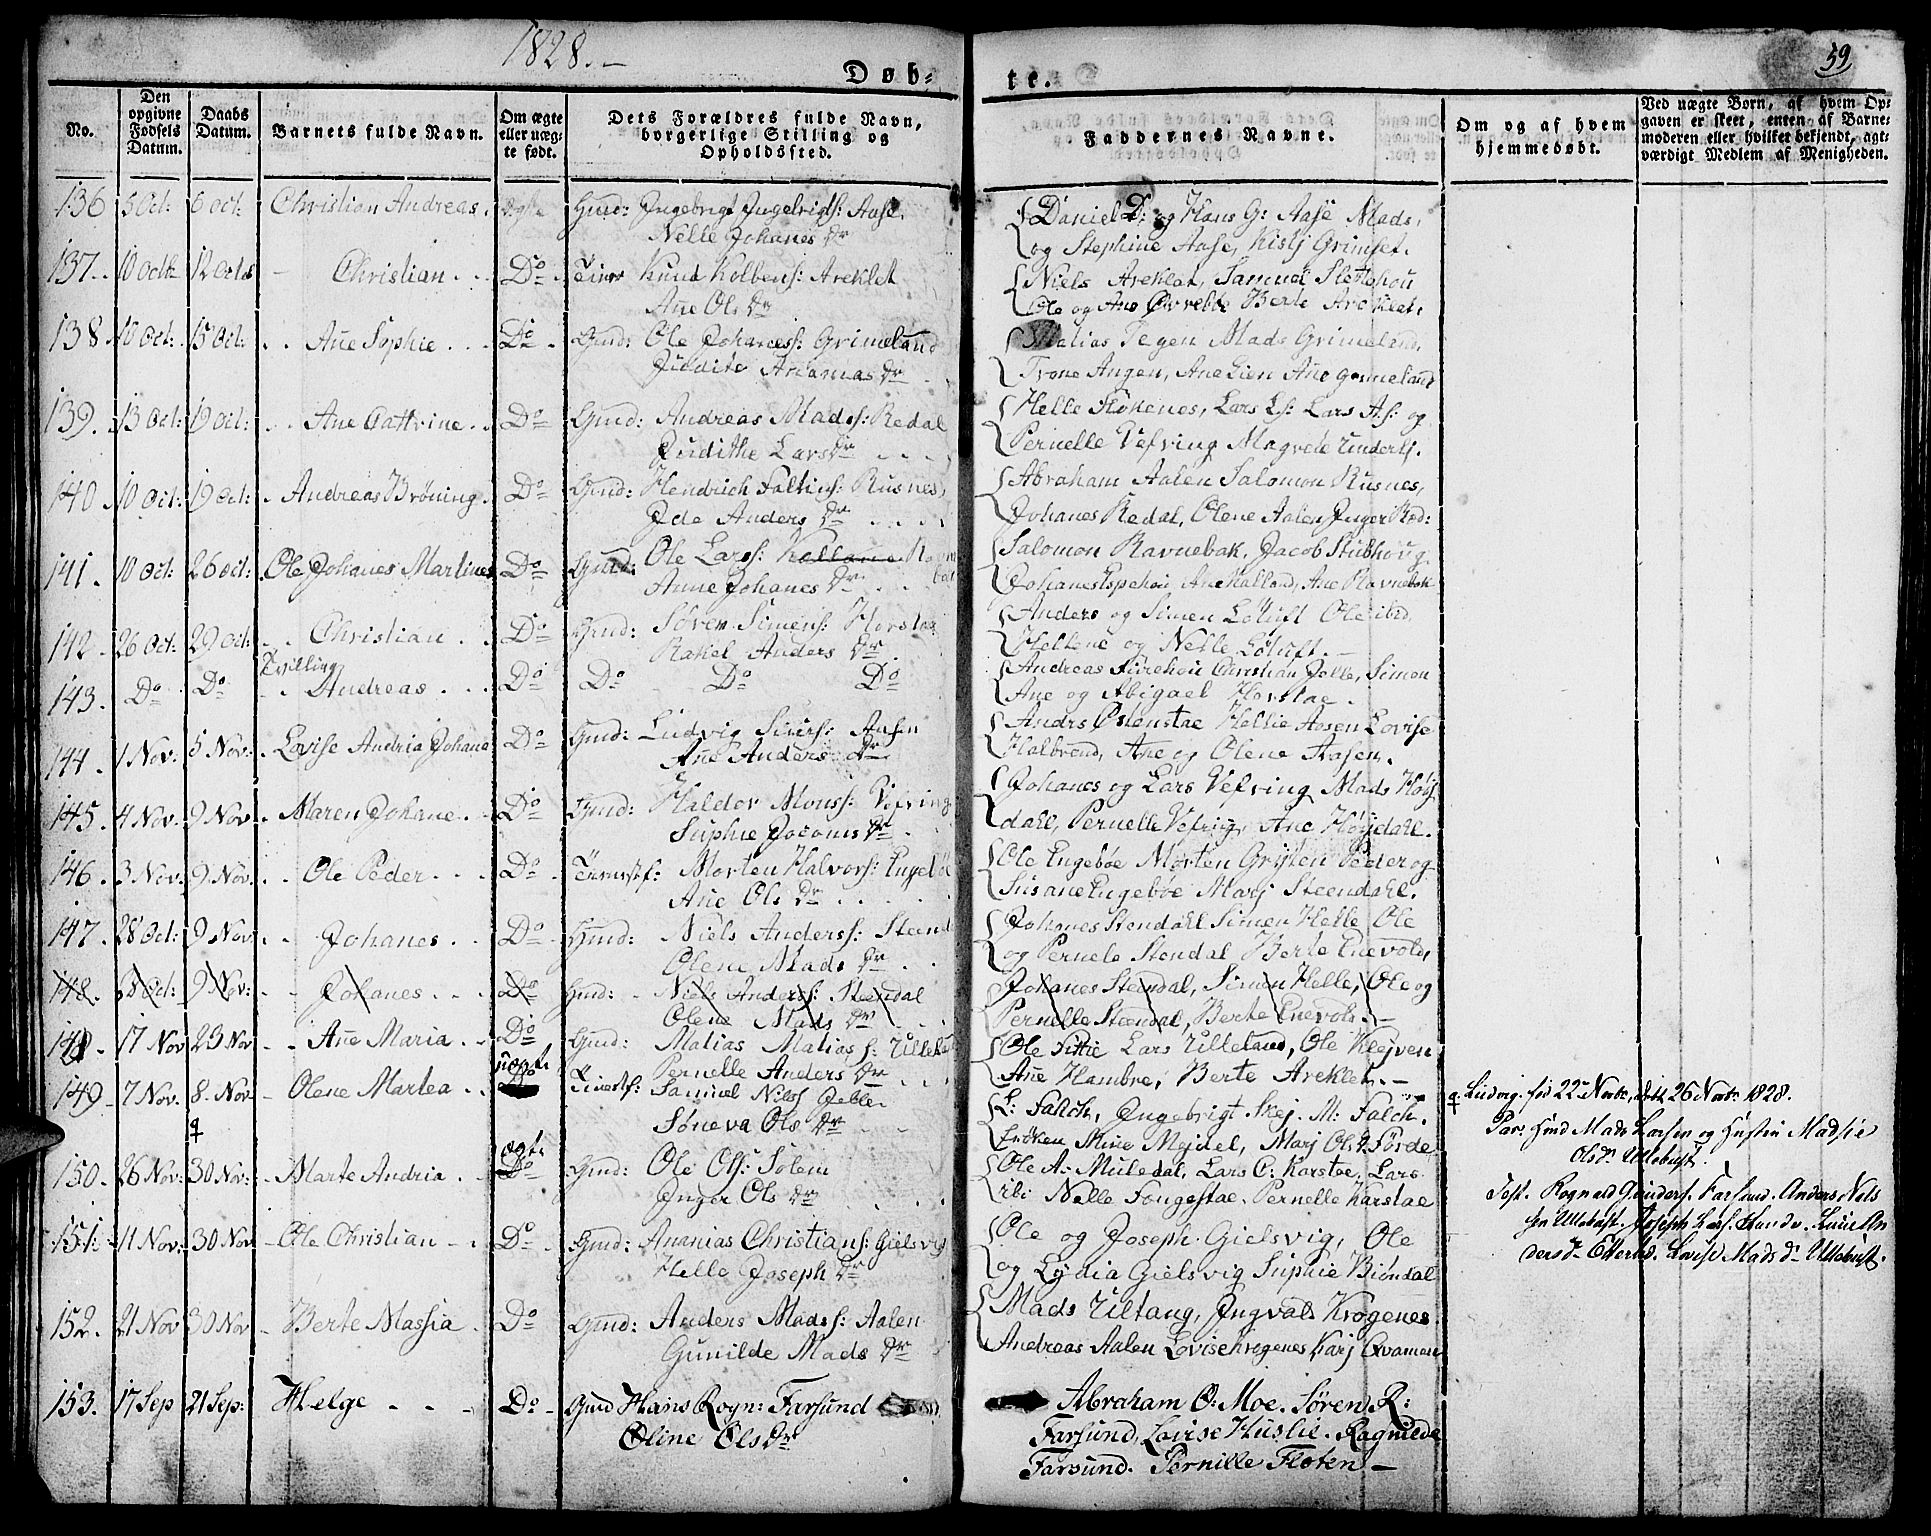 1828.-
59
Døb-
te.
No.
Den opgivne Fødsels Datum.
Daabs Datum.
Barnets fulde Navn.
Om ægte eller uæg-te født.
Dets Forældres fulde Navn, borgerlige Stilling og Opholdssted.
Faddernes Navne.
Om og af hvem hjemmedøbt.
Ved uægte Børn, af hvem Op-gaven er skeet, enten af Barne-moderen eller hvilket bekjendt, agt-værdigt Medlem af Menigheden.
136 5 Oct: 6 Oct: Christian Andreas. ægte Gmd: Ingebrigt Ingebrigts: Aase.
Nelle Johanes Dr
Daniel D: og Hans G: Aase Mads,
og Stephine Aase, Kistj Grimset.
137. 10 Octb 12 Octob - Christian . . Do Knud Kolbens: Areklet
Ane Ols Dr
Niels Areklet, Samuel Slettehou
Ole og Ane Berte Areklet.
138. 10 Oct: 15 Oct: . . Ane Sophie . . . Do . Gmd: Ole Johaness: Grimeland
Judite Ananias Dr
Matias Tegen Mads Grimeland,
Trone Angen, Ane Lien Ane Grimeland
139. 13 Oct: 19 Oct: . . Ane Cattrine . . Do Gmd: Andreas Madss: Redal
Judithe Lars Dr . . .
Helle Høkenes, Lars Ls: Lars As: og
Pernelle Vefring Magrete
140. 10 Oct: 19 Oct: . Andreas Brøning . Do Gmd: Hendrich Faltins: Rusnes,
Ide Anders Dr . . . .
Abraham Aalen Salomon Rusnes,
Johanes Redal, Olene Aalen Inger Red:
141. 10 Oct: 26 Oct: Ole Johanes Martines Do Gmd: Ole Larss:
Anne Johanes Dr . .
Salomon Ravnebak, Jacob Stubhoug
Johanes Espehou Ane Kalland, Ane Ravnebak
142. 26 Oct: 29 Oct: . . Christian . . Do Gmd: Søren Simens: Horstae
Rakel Anders Dr .
Anders og Simen Løtuft Ole ibid,
Heltene og Nelle Løtuft. -
143. Do Do Tvilling . . Andreas . . . Do Do Do Do
Andreas Furehou Christian Jelle, Simon
Ane og Abigael Horstae.
144. 1 Nov: 5 Nov: . Lovise Andria Johane Do Gmd: Ludvig Aasen
Ane Anders Dr
Andrs Østenstae Heltie Aasen Lovise
Halbrend, Ane og Olene Aasen.
145. 4 Nov. 9 Nov . Maren Johane . . Do Gmd: Haldor Monss: Vefring
Suphie Dr .
Johanes og Lars Vefring Mads Høy
dahl, Pernelle Vefrig, Ane Høydahl.
146. 3 Nov. 9 Nov. . . Ole Peder . . . Do . Morten Halvors: Engebø
Ane Ols Dr . . . .
Ole Engebøe Morten Grytten Peder og
Susane Engebøe Marj Steendahl.
147. 28 Oct: 9 Nov: . . Johanes . . Do . Gmd: Niels Anderss: Steend
Olene Mads Dr . .
Johanes Stendahl Simen Helle Ole
og Pernele Stendal Berte Enevolds
148. 28 Oct: 9 Nov: - - Johanes . . . Do Gmd: - Niels Anderss: Stendal
Olene Mads Dr . . .
Johanes Steendal, Simon Helle, Ole og
Pernelle Steendal, Berte Enevols. -
148. 17 Nov 23 Nov . . Ane Maria . . Do Gmd: Matias Matias s:
Pernelle Anders Dr . . .
Ole Lars Ulleland, Ole Klejven
Ane Hambre, Berte Areklet. -
149. 7 Nov. 8. Nov - Olene Martea . . uegt. Samuel Nilss Jelle.
Søneva Ols Dr . .
L: Falch, Ingebrigt Skej. M: Falch.
Frøken, Mine Mejdel, Marj Ols. Førde
Ludvig. fød 22 Novbr, døbt 26 Novbr 1828.
Par. Gmd Mads Larsen og Hustru Madsie
Olsdr Ullebust.
Test. Rognald Farsund. Anders Nels
sen Ullebust. Joseph Lars:
dersdr Lovise Mads dr Ullebust.
150. 26 Nov: 30 Nov: - Marte Andria . . egt. Do Gmd: Ole Ols: Solem
Inger Ols Dr
Ole A: Miledal, Lars O: Karstae, Lars
ibi Nelle Fongestae. Pernelle Karstae
151. 11 Nov: 30 Nov - Ole Christian - . Do . Gmd: Ananias Christians: Gielsvig
Helle Joseph Dr
Ole og Joseph. Gielsvig, Ole
og Lydia Gielsvig Suphie Biøndal
152. 21 Nov 30 Nov - Berte Massia . Do . Gmd: Anders Madss: Aalen
Gunilde Mads Dr
Mads Ultang, Ingvals Krogenes
Andreas Aalen Lovise Krogenes Karj Qvamen
153. 17 Sep 21 Sep: Helge - - - Do - Gmd Hans Rogn: Farsund
Oline Ols Dr
Abraham O: Moe. Søren R:
Farsund, Lovise Huslie. Ragnilde
Farsund. Pernille Floten -